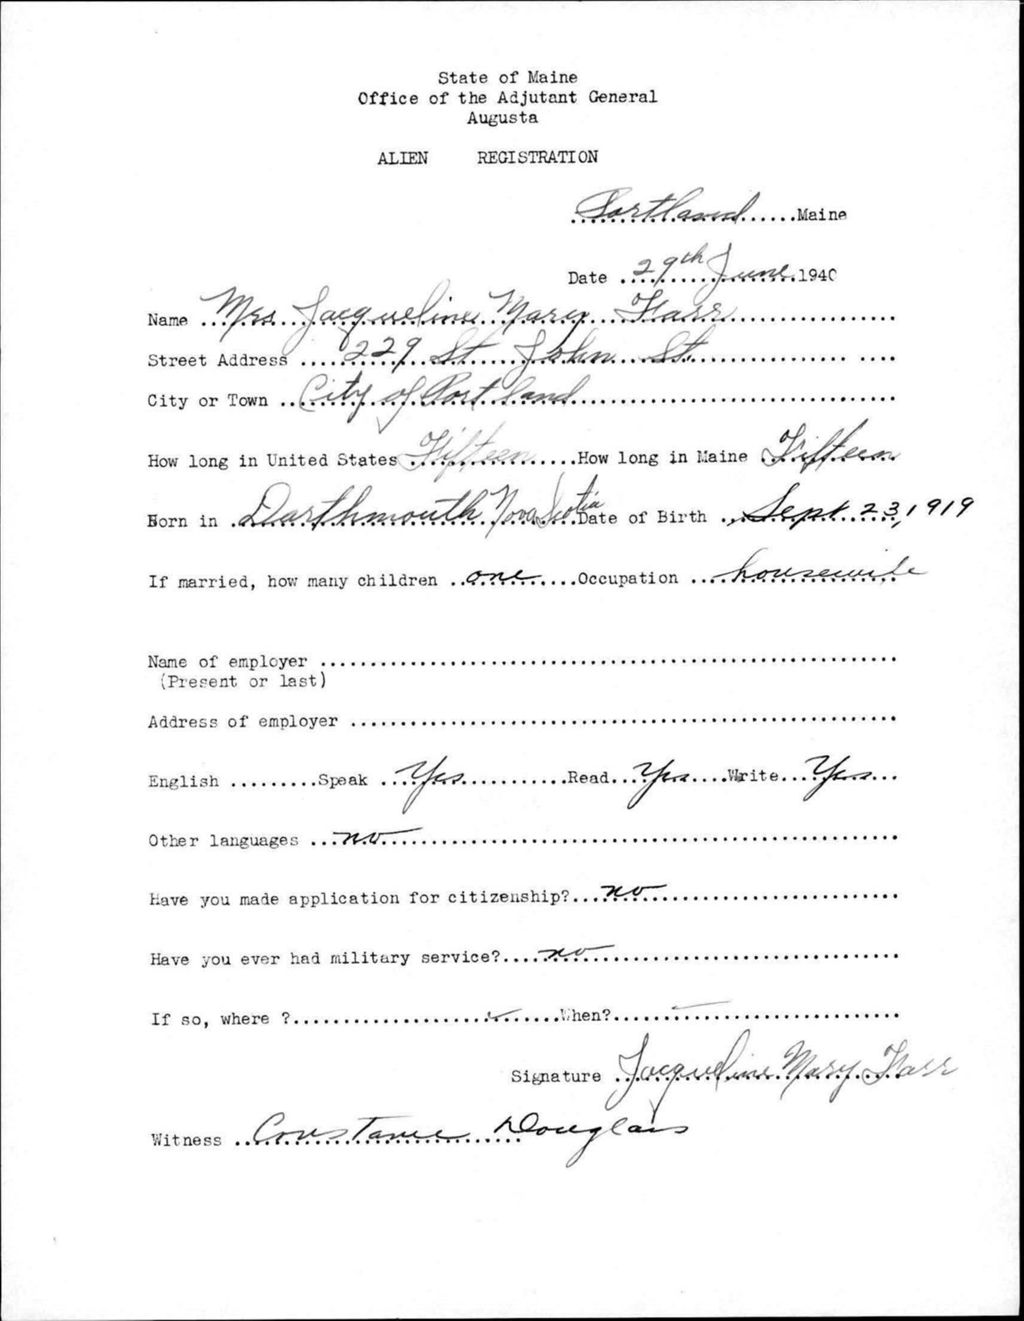 State of Maine
Office of the Adjutant General
Augusta
ALIEN REGISTRATION
Portland Maine
Date 29th June 1940
Name Mrs Jacqueline Mary Harr
Street Address 229 St John St.
City or Town City of Portland
How long in United States Fifteen How long in Maine Fifteen
Born in Darthmouth Nova Scotia Date of Birth Sept 23, 1919
If married, how many children one Occupation housewife
Name of employer
(Present or last)
Address of employer
English Speak Yes Read Yes Write Yes
Other languages no
Have you made application for citizenship? no
Have you ever had military service? no
If so, where ? When?
Signature Jacqueline Mary Harr
Witness Constance Douglass